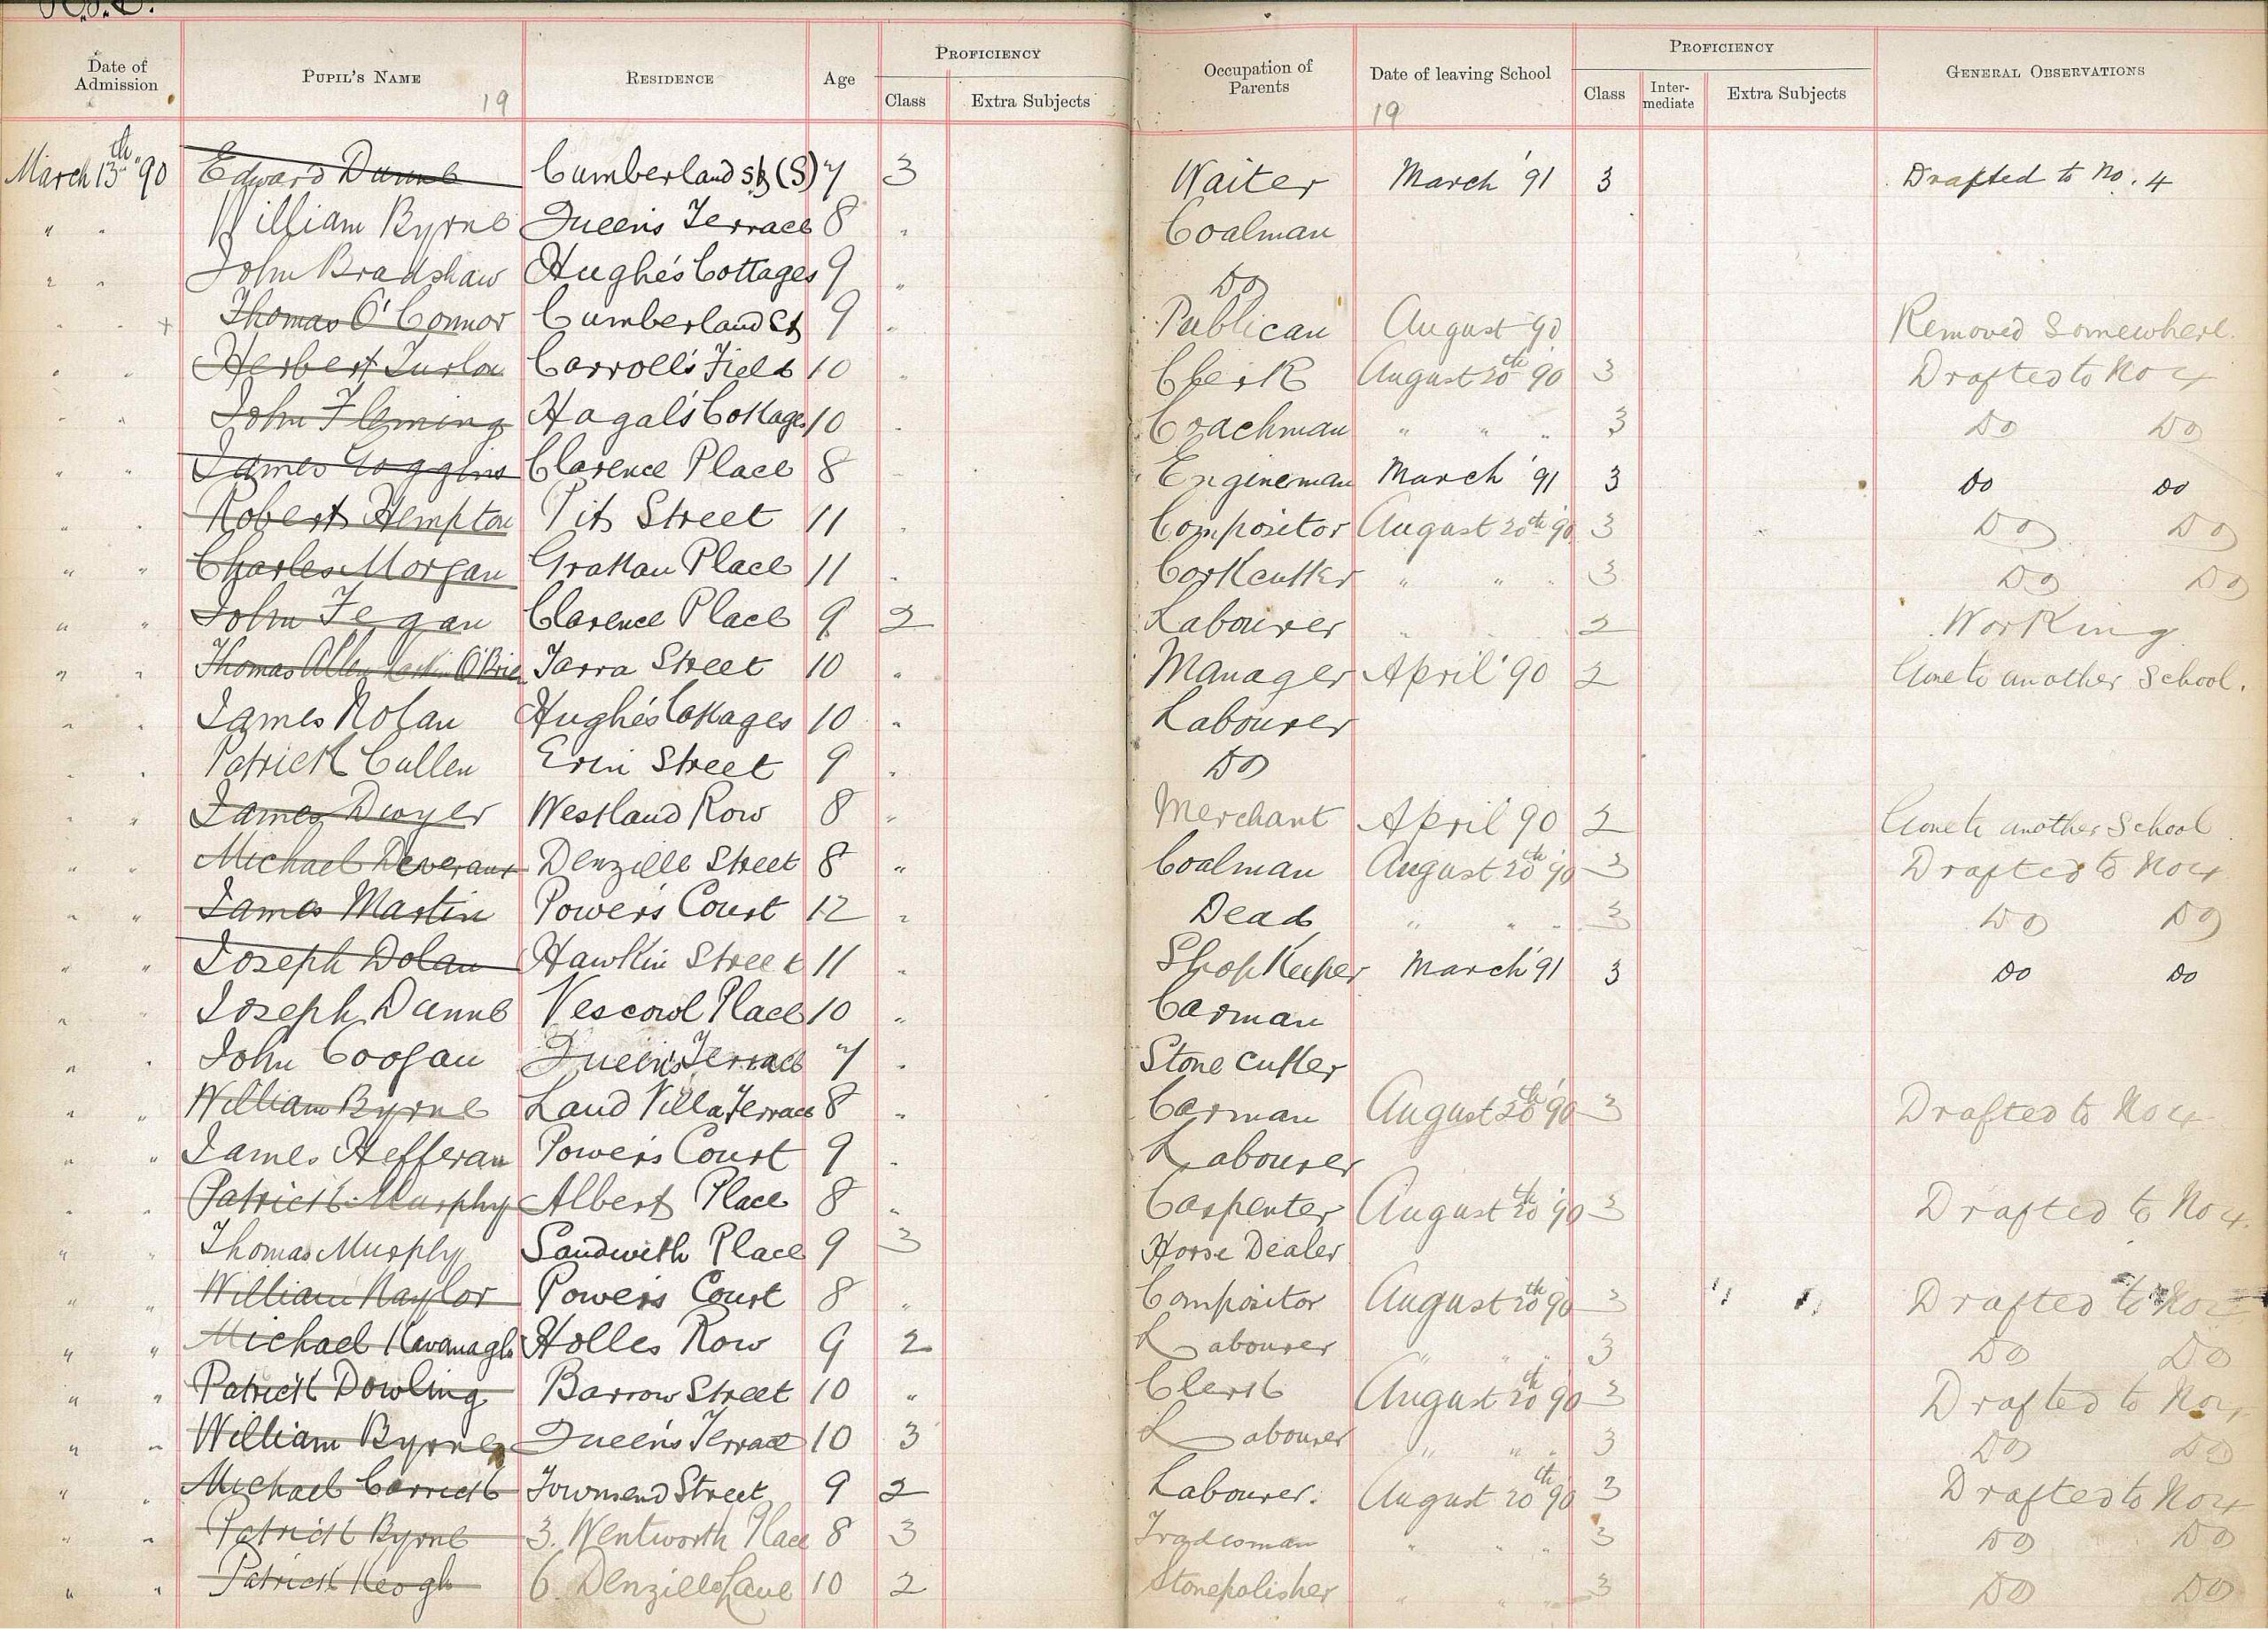 R.S.C.
Date of Admission Pupil's Name Residence Age Proficiency Occupation of Parents Date of leaving School Proficiency General Observations
Class Extra Subjects Class Inter-mediate Extra Subjects
19 19
March 13th "90 Edward Dunne Cumberland St (S) 7 3 Waiter March '91 3 Drafted to No. 4
" " William Byrne Queen's Terrace 8 " Coalman
" " John Bradshaw Hughe's Cottages 9 " Do
" " + Thomas O'Connor Cumberland St 9 " Publican August '90 Removed Somewhere.
" " Herbert Turlon Carroll's Field 10 " Clerk August 20th '90 3 Drafted to No 4
" " John Fleming Hagal's Cottages 10 " Coachman " " " 3 Do Do
" " James Goggins Clarence Place 8 " Engineman March '91 3 Do Do
" " Robert Hempton Pits Street 11 " Compositor August 20th '90 3 Do Do
" " Charles Morgan Grattan Place 11 " Corkcutter " " " 3 Do Do
" " John Fegan Clarence Place 9 2 Labourer " " 2 Working
" " Thomas Allen O'Brien Jarra Street 10 " Manager April '90 2 Gone to another School.
" " James Nolan Hughe's Cottages 10 " Labourer
" " Patrick Cullen Erin Street 9 " Do
" " James Dwyer Westland Row 8 " Merchant April '90 2 Gone to another School
" " Michael Deveraux Denzille Street 8 " Coalman August 20th '90 3 Drafted to No 4
" " James Martin Power's Court 12 " Dead " " " 3 Do Do
" " Joseph Dolan Hawkin Street 11 " Shop Keeper March '91 3 Do Do
" " Joseph Dunne Vescovl Place 10 " Carman
" " John Coogan Queen's Terrace 7 " Stone cutter
" " William Byrne Land Villa Terrace 8 " Carman August 20th '90 3 Drafted to No 4
" " James Hefferan Power's Court 9 " Labourer
" " Patrick Murphy Albert Place 8 " Carpenter August 20th '90 3 Drafted to No 4.
" " Thomas Murphy Sandwith Place 9 3 Horse Dealer
" " William Naylor Power's Court 8 " Compositor August 20th '90 3 Drafted to No 4
" " Michael Kavanagh Holles Row 9 2 Labourer " " " 3 Do Do
" " Patrick Dowling Barrow Street 10 " Clerk August 20th '90 3 Drafted to No 4
" " William Byrne Queen's Terrace 10 3 Labourer " " " 3 Do Do
" " Michael Carrick Townsend Street 9 2 Labourer. August 20th '90 3 Drafted to No 4
" " Patrick Byrne 3. Wentworth Place 8 3 Tradesman " " " 3 Do Do
" " Patrick Keogh 6 Denzille Lane 10 2 Stonepolisher " " " 3 Do Do